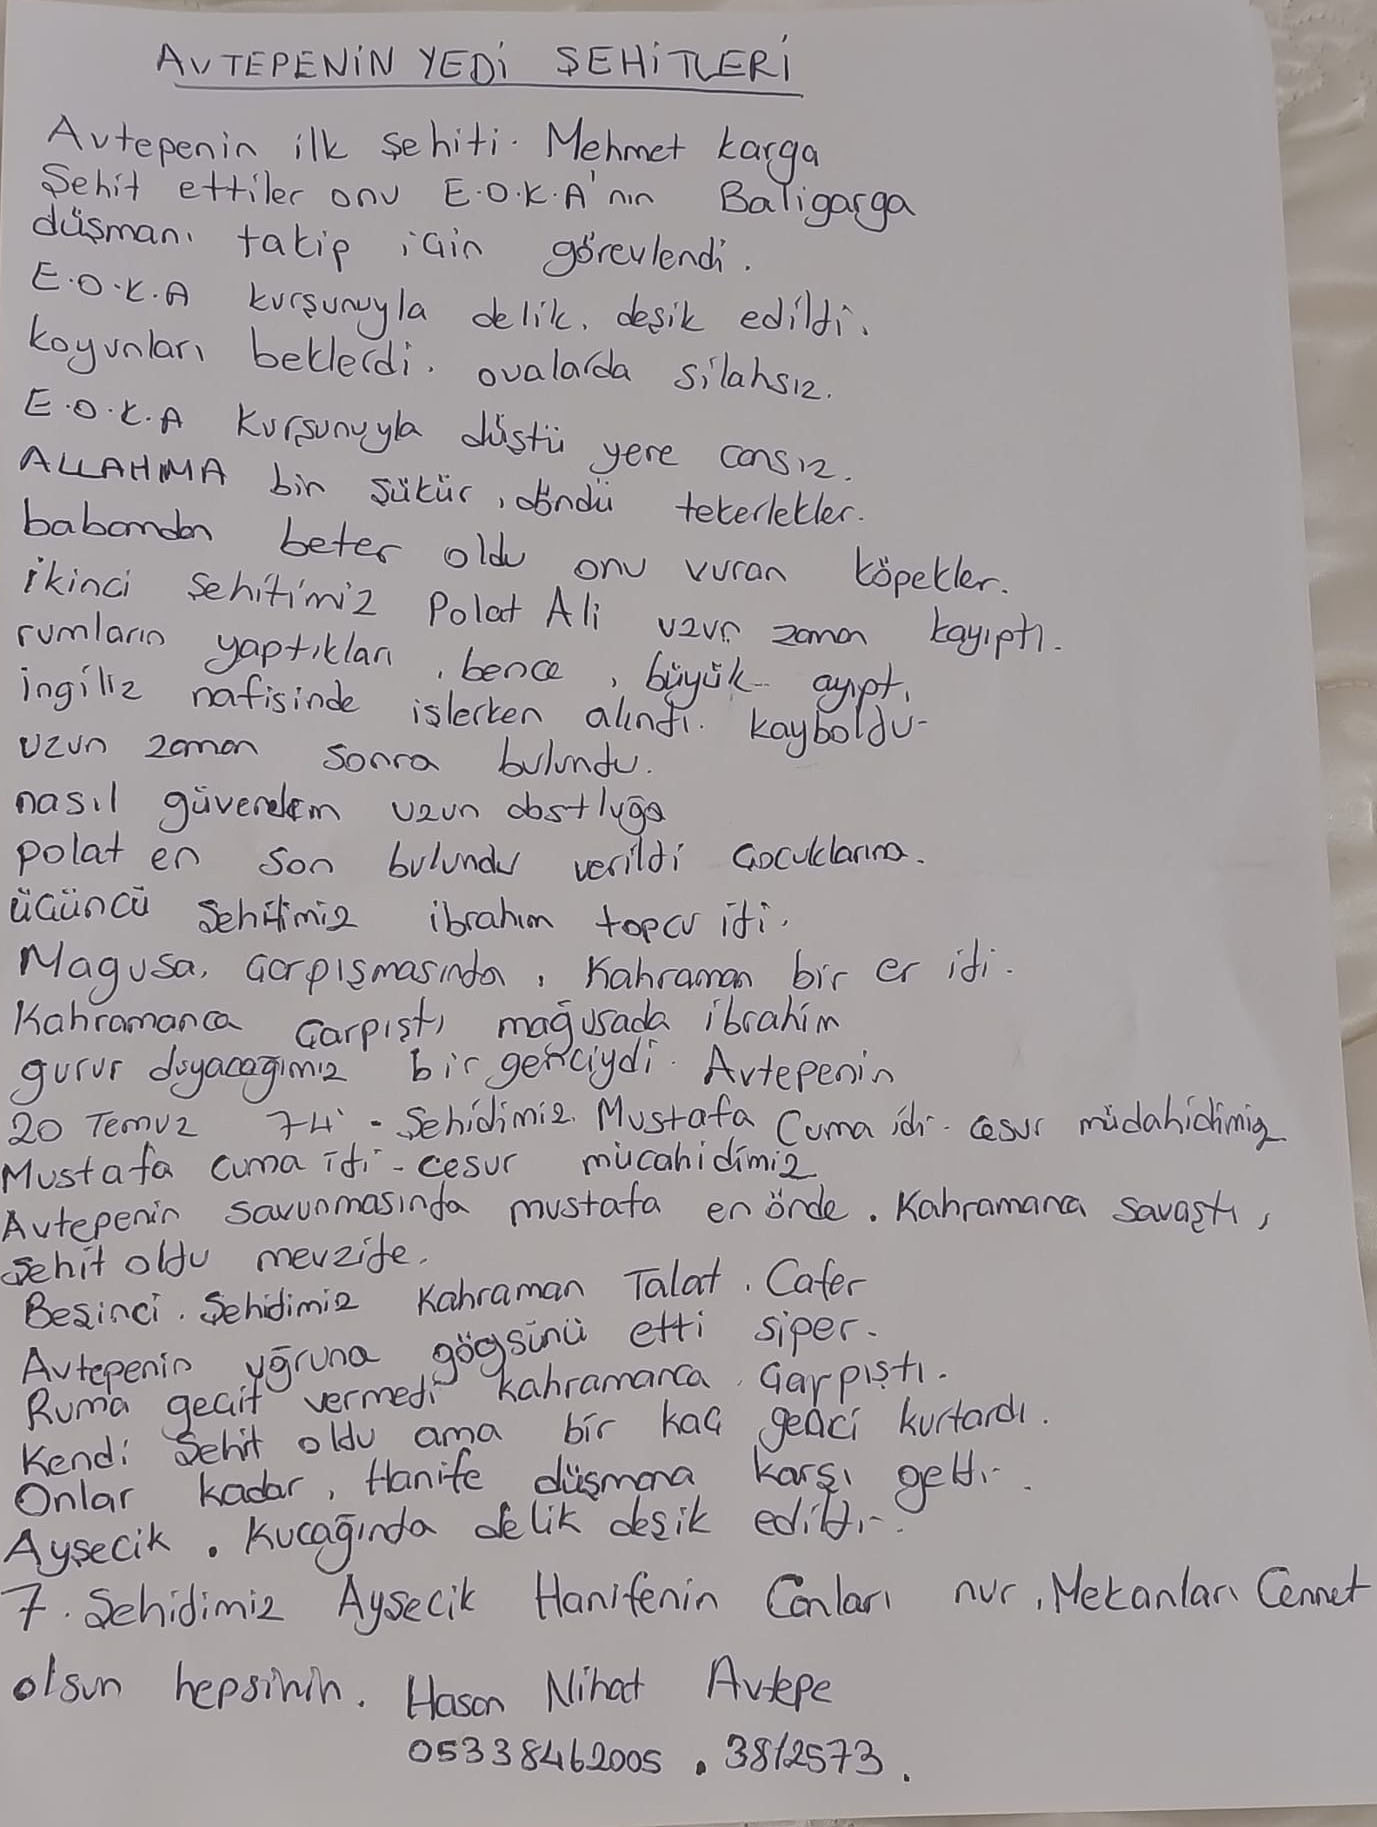 AVTEPENİN YEDİ ŞEHİTLERİ
Avtepenin ilk şehiti. Mehmet karga
Şehit ettiler onu E.O.K.A'nın Baligarga
düşmanı takip için görevlendi.
E.O.K.A kurşunuyla delik, deşik edildi.
koyunları beklerdi. ovalarda silahsız.
E.O.K.A kurşunuyla düştü yere cansız.
ALLAHIMA bin şükür, döndü tekerlekler.
babamdan beter oldu onu vuran köpekler.
ikinci şehitimiz Polat Ali uzun zaman kayıptı.
rumların yaptıkları, bence, büyük ayıptı
ingiliz nafisinde işlerken alındı. kayboldu-
uzun zaman sonra bulundu.
nasıl güverelim uzun dostluğa
polat en son bulundu verildi çocuklarına.
üçüncü şehitimiz ibrahım topcu idi.
Magusa, çarpışmasında, kahraman bir er idi.
Kahramanca çarpıştı mağusada ibrahim
gurur duyacağımız bir genciydi. Avtepenin
20 Temuz 74' - Şehidimiz. Mustafa Cuma idi- cesur müdahidimiz
Mustafa cuma idi - cesur mücahidimiz
Avtepenin savunmasında mustafa en önde. Kahramana savaştı,
şehit oldu mevzide.
Beşinci. Şehidimiz Kahraman Talat. Cafer
Avtepenin uğruna göğsünü etti siper.
Ruma geçit vermedi kahramanca çarpıştı.
Kendi Şehit oldu ama bir kaç genci kurtardı.
Onlar kadar, Hanife düşmana karşı geldi.
Ayşecik. Kucağında delik deşik edildi.
7. Şehidimiz Ayşecik Hanifenin Canları nur, Mekanları Cennet
olsun hepsinin. Hasan Nihat Avtepe
05338462005 . 3812573.